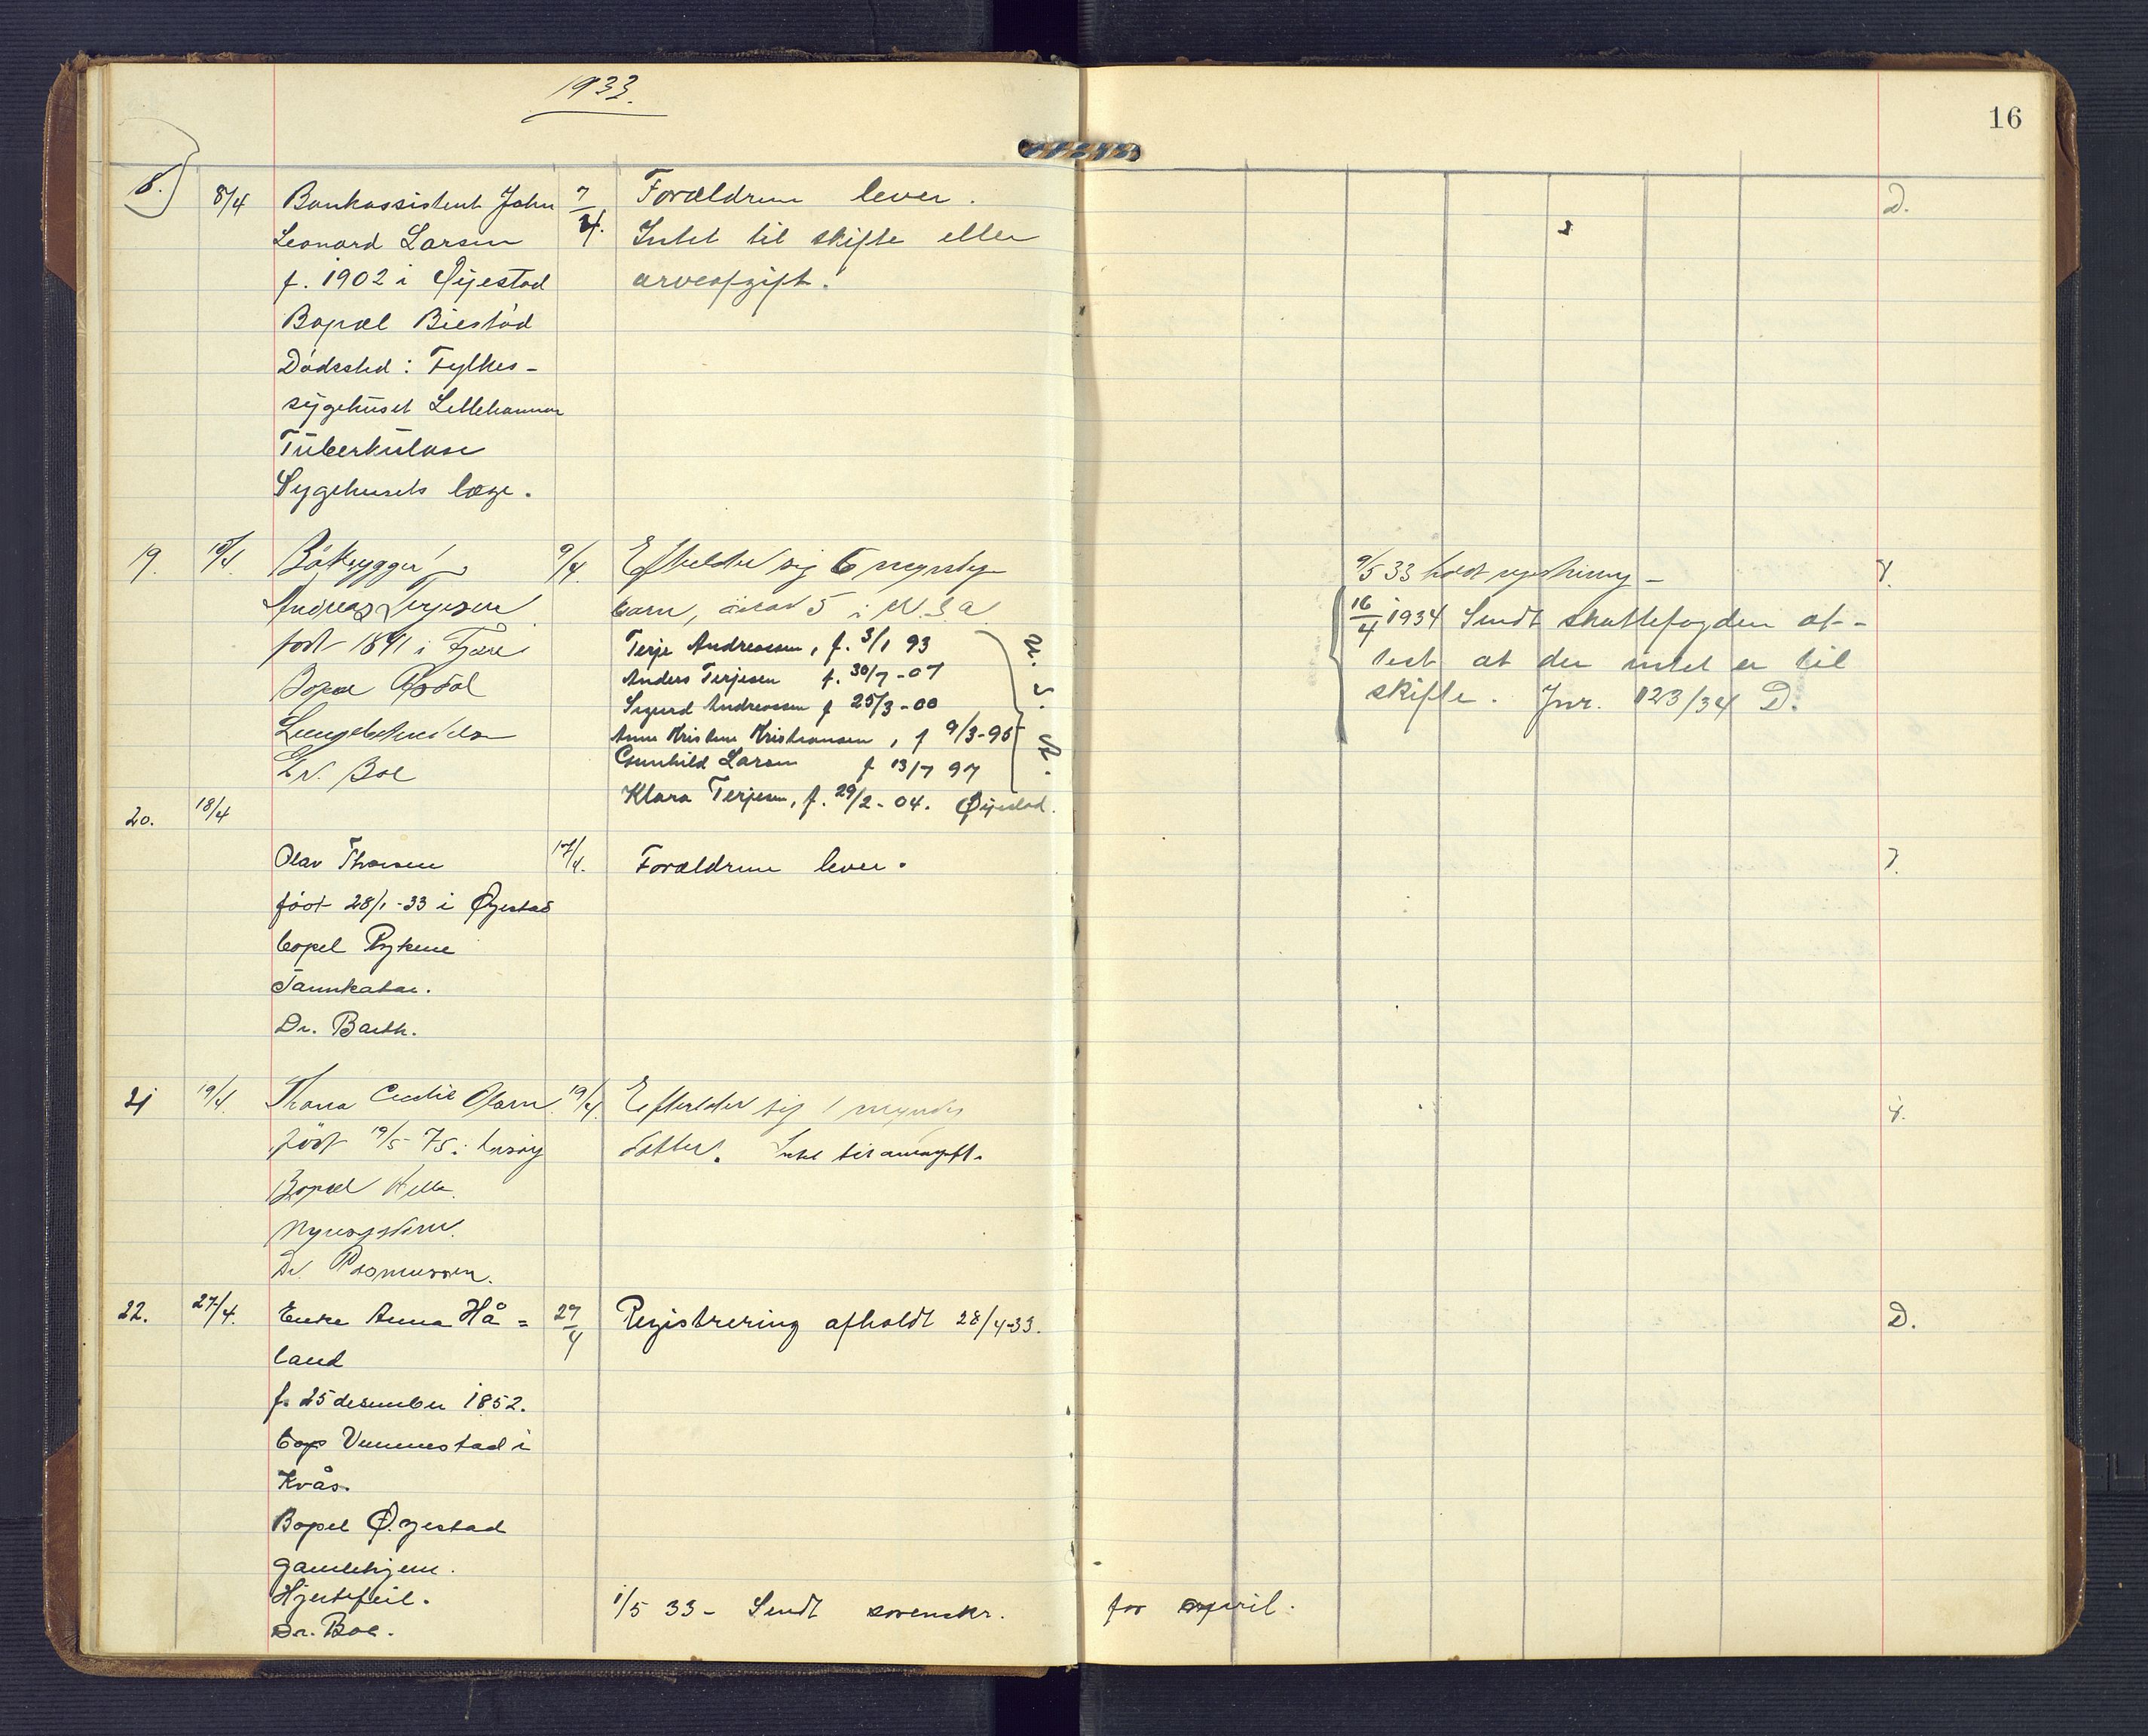 1933.
16
8. 8/4 Bankassistent John 7/4. Forældrene lever. D.
Leonard Larsen Intet til skifte eller
f. 1902 i Øyestad arveafgift.
Bopæl Biestød
Dødssted: Fylkes-
sygehuset Lillehammer
Tuberkulose
Sygehusets læge.
19. 10/4. Båtbygger 9/4. Efterlater sig 6 myndige 9/5 33 holdt registrering -
Andreas Terjesen barn, derav 5 i U.S.A. 16/4 1934 Sendt skattefogden at-
født 1841 i Fjære Terje Andreassen, f. 3/1 93 test at der intet er til
Bopæl Anders Terjesen f. 30/7-07 skifte. Jnr. 123/34 D.
Sigurd Andreassen f 25/3-00
Lungebetendelse Anne Kristine Kristiansen, f 9/3-95
Dr. Boe Gunhild Larsen f 13/7 97
U. S. A.
Klara Terjesen, f. 29/2-04. Øyestad.
20. 18/4
Olav Thorsen 17/4. Forældrene lever.
født 28/1-33 i Øyestad
bopel Rykene
Tarmkatar.
Dr. Barth.
21 19/4. Thona Cecilie Olsen 19/4. Efterlater sig 1 myndig
født 19/5-75 i datter. Intet til arveavgift.
Bopæl
Dr. Rasmussen.
22. 27/4. Enke Anna Hå= 27/4 Registrering afholdt 28/4-33. D.
land
f. 25 desember 1852.
Vemmestad i
Kvås.
Bopel Øyestad
gamlehjem.
Hjertefeil.
Dr. Boe.
1/5 33- Sendt sorenskr. for april.